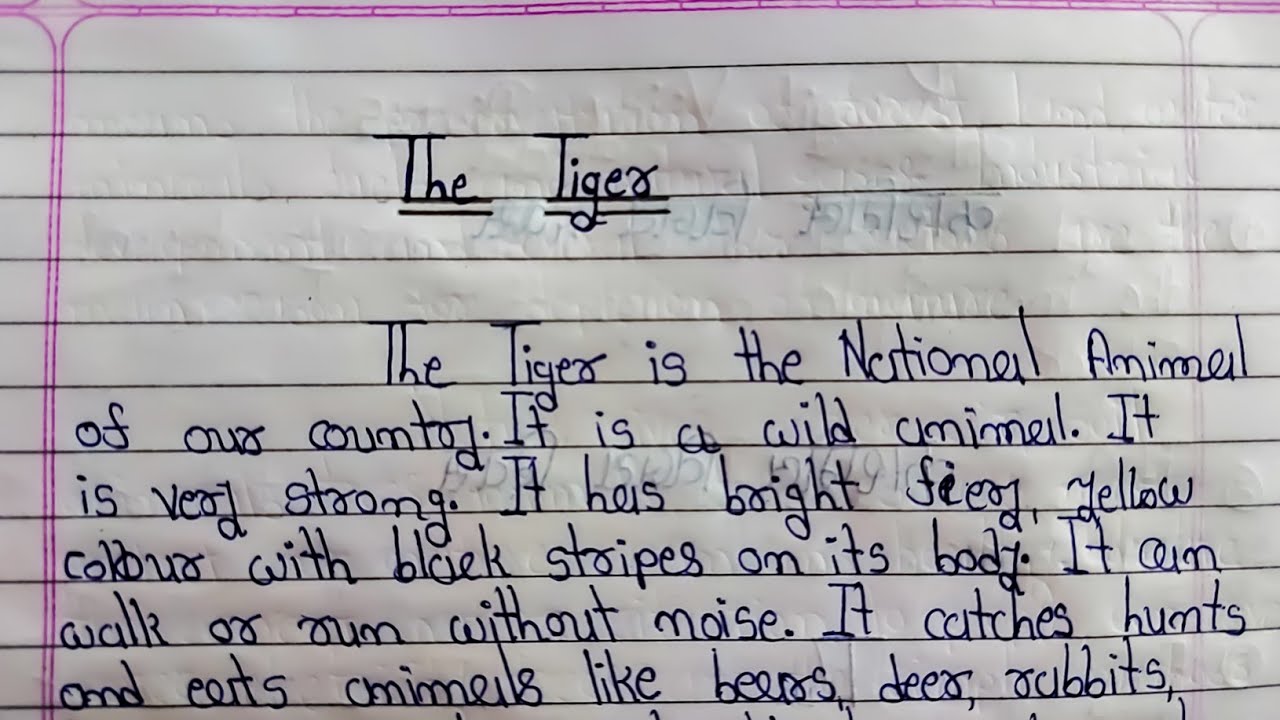 The Tiger
The Tiger is the National Animal
of our country. It is a wild animal. It
is very strong. It has bright fiery, yellow
colour with black stripes on its body. It can
walk or run without noise. It catches hunts
and eats animals like bears, deer, rabbits,